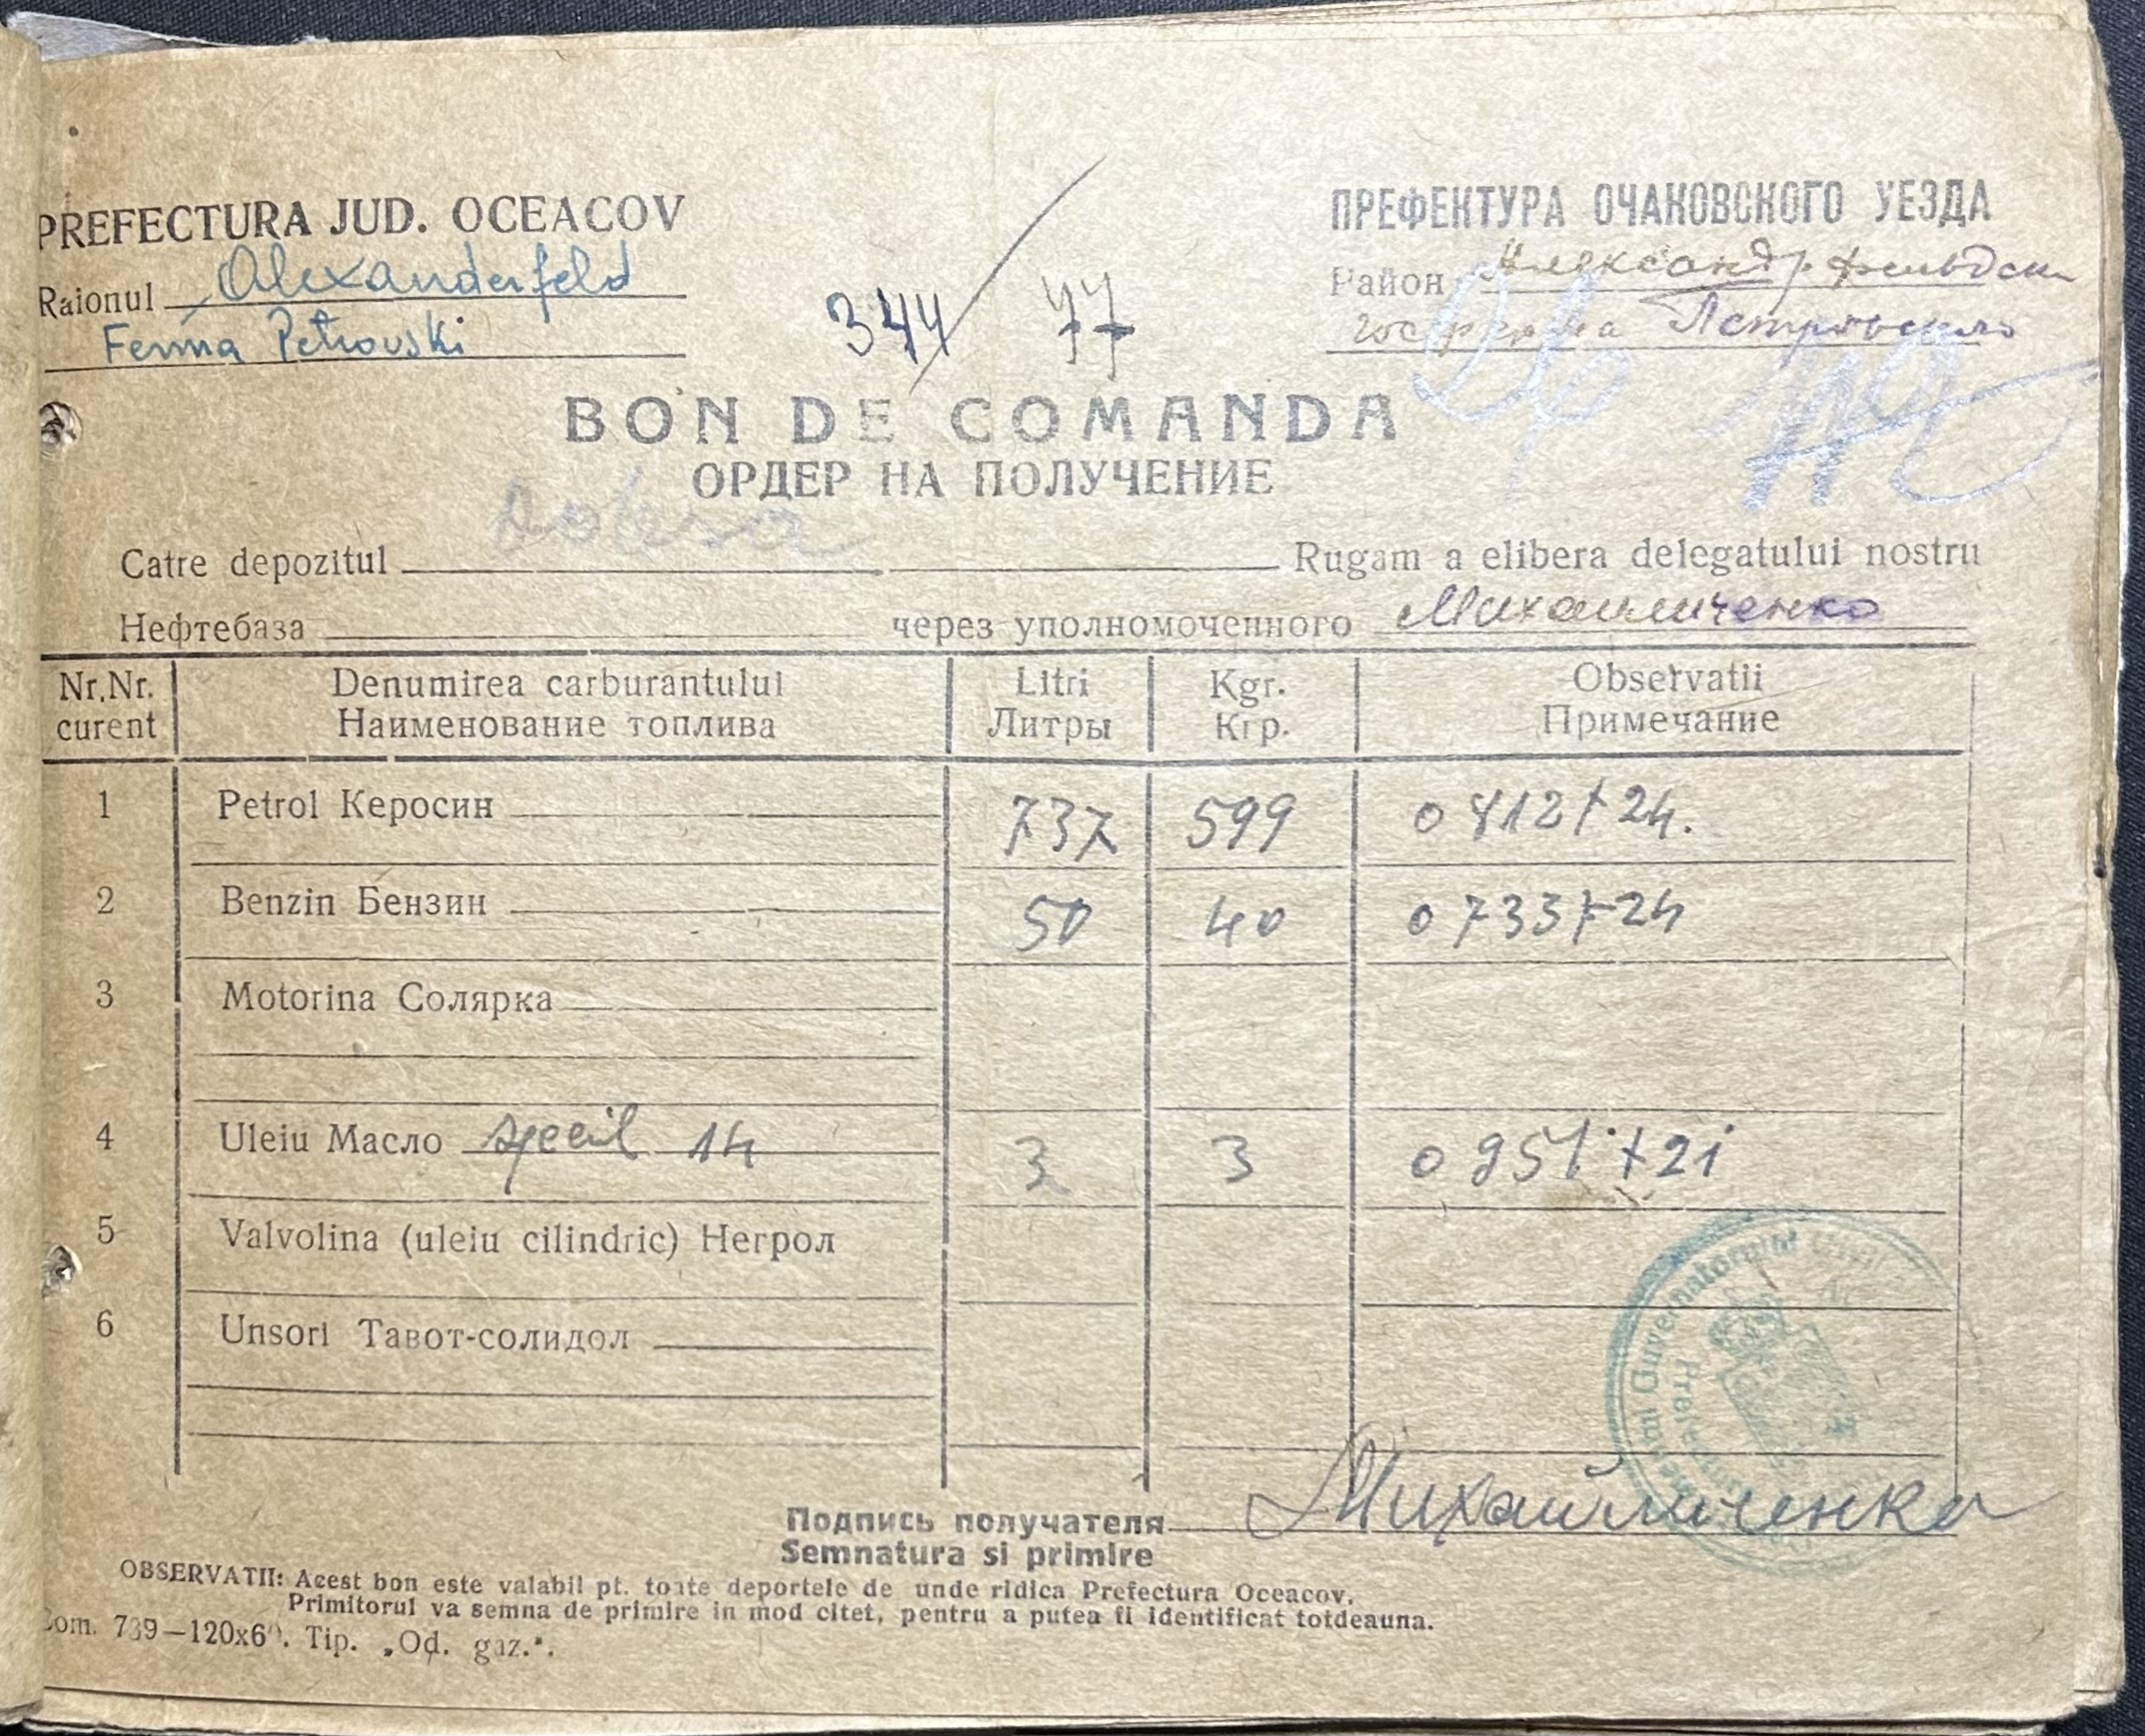 PREFECTURA JUD. OCEACOV
Raionul Alexanderfeld
Ferma Petrovski
344/77
ПРЕФЕКТУРА ОЧАКОВСКОГО УЕЗДА
Район Александрфельдски
Госферма Петровского
BON DE COMANDA
ОРДЕР НА ПОЛУЧЕНИЕ
Catre depozitul Rugam a elibera delegatului nostru
Нефтебаза через уполномоченного Михайличенко
Nr.Nr. curent Denumirea carburantului Litri Kgr. Observatii
Наименование топлива Литры Кгр. Примечание
1 Petrol Керосин 737 599 0812+24.
2 Benzin Бензин 50 40 0733+24
3 Motorina Солярка
4 Uleiu Масло 14 3 3 0951+21
5 Valvolina (uleiu cilindric) Негрол
6 Unsori Тавот-солидол
Guvernatorului
Подпись получателя Михайличенко
Semnatura si primire
OBSERVATII: Acest bon este valabil pt. toate deportele de unde ridica Prefectura Oceacov.
Primitorul va semna de primire in mod citet, pentru a putea fi identificat totdeauna.
Com. 739—120x60. Tip. „Od. gaz.".